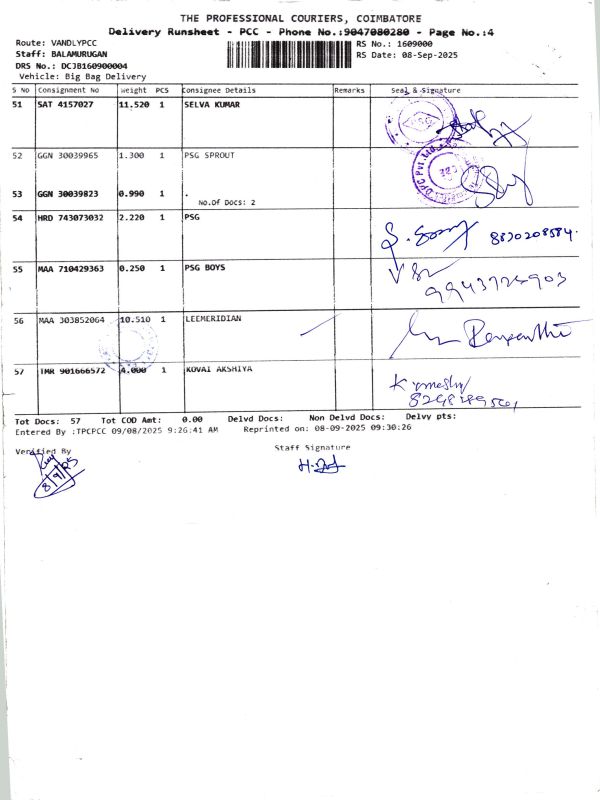 THE PROFESSIONAL COURIERS, COIMBATORE
Delivery Runsheet - PCC - Phone No.:9047080280 - Page No.:4
Route: VANDLYPCC
Staff: BALAMURUGAN
DRS No.: DCJB160900004
Vehicle: Big Bag Delivery
RS No.: 1609000
RS Date: 08-Sep-2025
S No Consignment No Weight PCS Consignee Details Remarks Seal & Signature
51 SAT 4157027 11.520 1 SELVA KUMAR
52 GGN 30039965 1.300 1 PSG SPROUT
53 GGN 30039823 0.990 1 .
No.Of Docs: 2
54 HRD 743073032 2.220 1 PSG
8870208584.
55 MAA 710429363 0.250 1 PSG BOYS
56 MAA 303852064 10.510 1 LEEMERIDIAN
57 IMR 901666572 4.000 1 KOVAI AKSHIYA
Tot Docs: 57 Tot COD Amt: 0.00 Delvd Docs: Non Delvd Docs: Delvy pts:
Entered By :TPCPCC 09/08/2025 9:26:41 AM Reprinted on: 08-09-2025 09:30:26
Verified By
Staff Signature
8/9/25